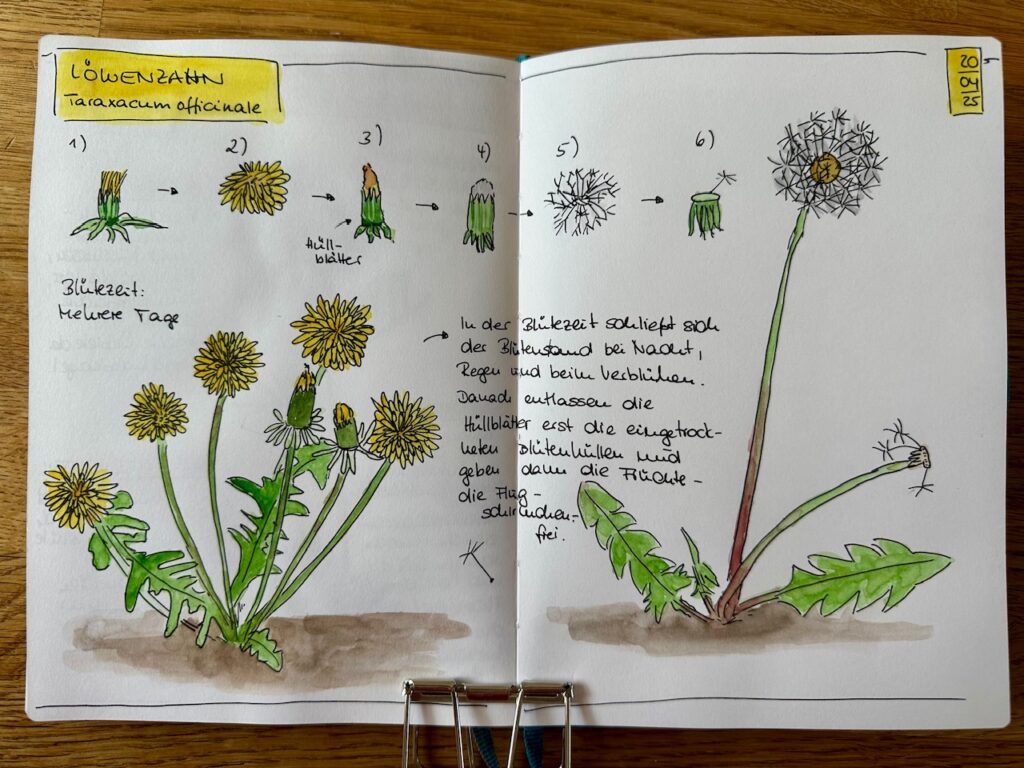 LÖWENZAHN
Taraxacum officinale
20|04|25
1)
2)
3)
4)
5)
6)
Hüll-
blätter
Blütezeit:
Mehrere Tage
In der Blütezeit schließt sich
der Blütenstand bei Nacht,
Regen und beim Verblühen.
Danach entlassen die
Hüllblätter erst die eingetrock-
neten Blütenhüllen und
geben dann die Früchte-
die Flug-
schirmchen-
frei.